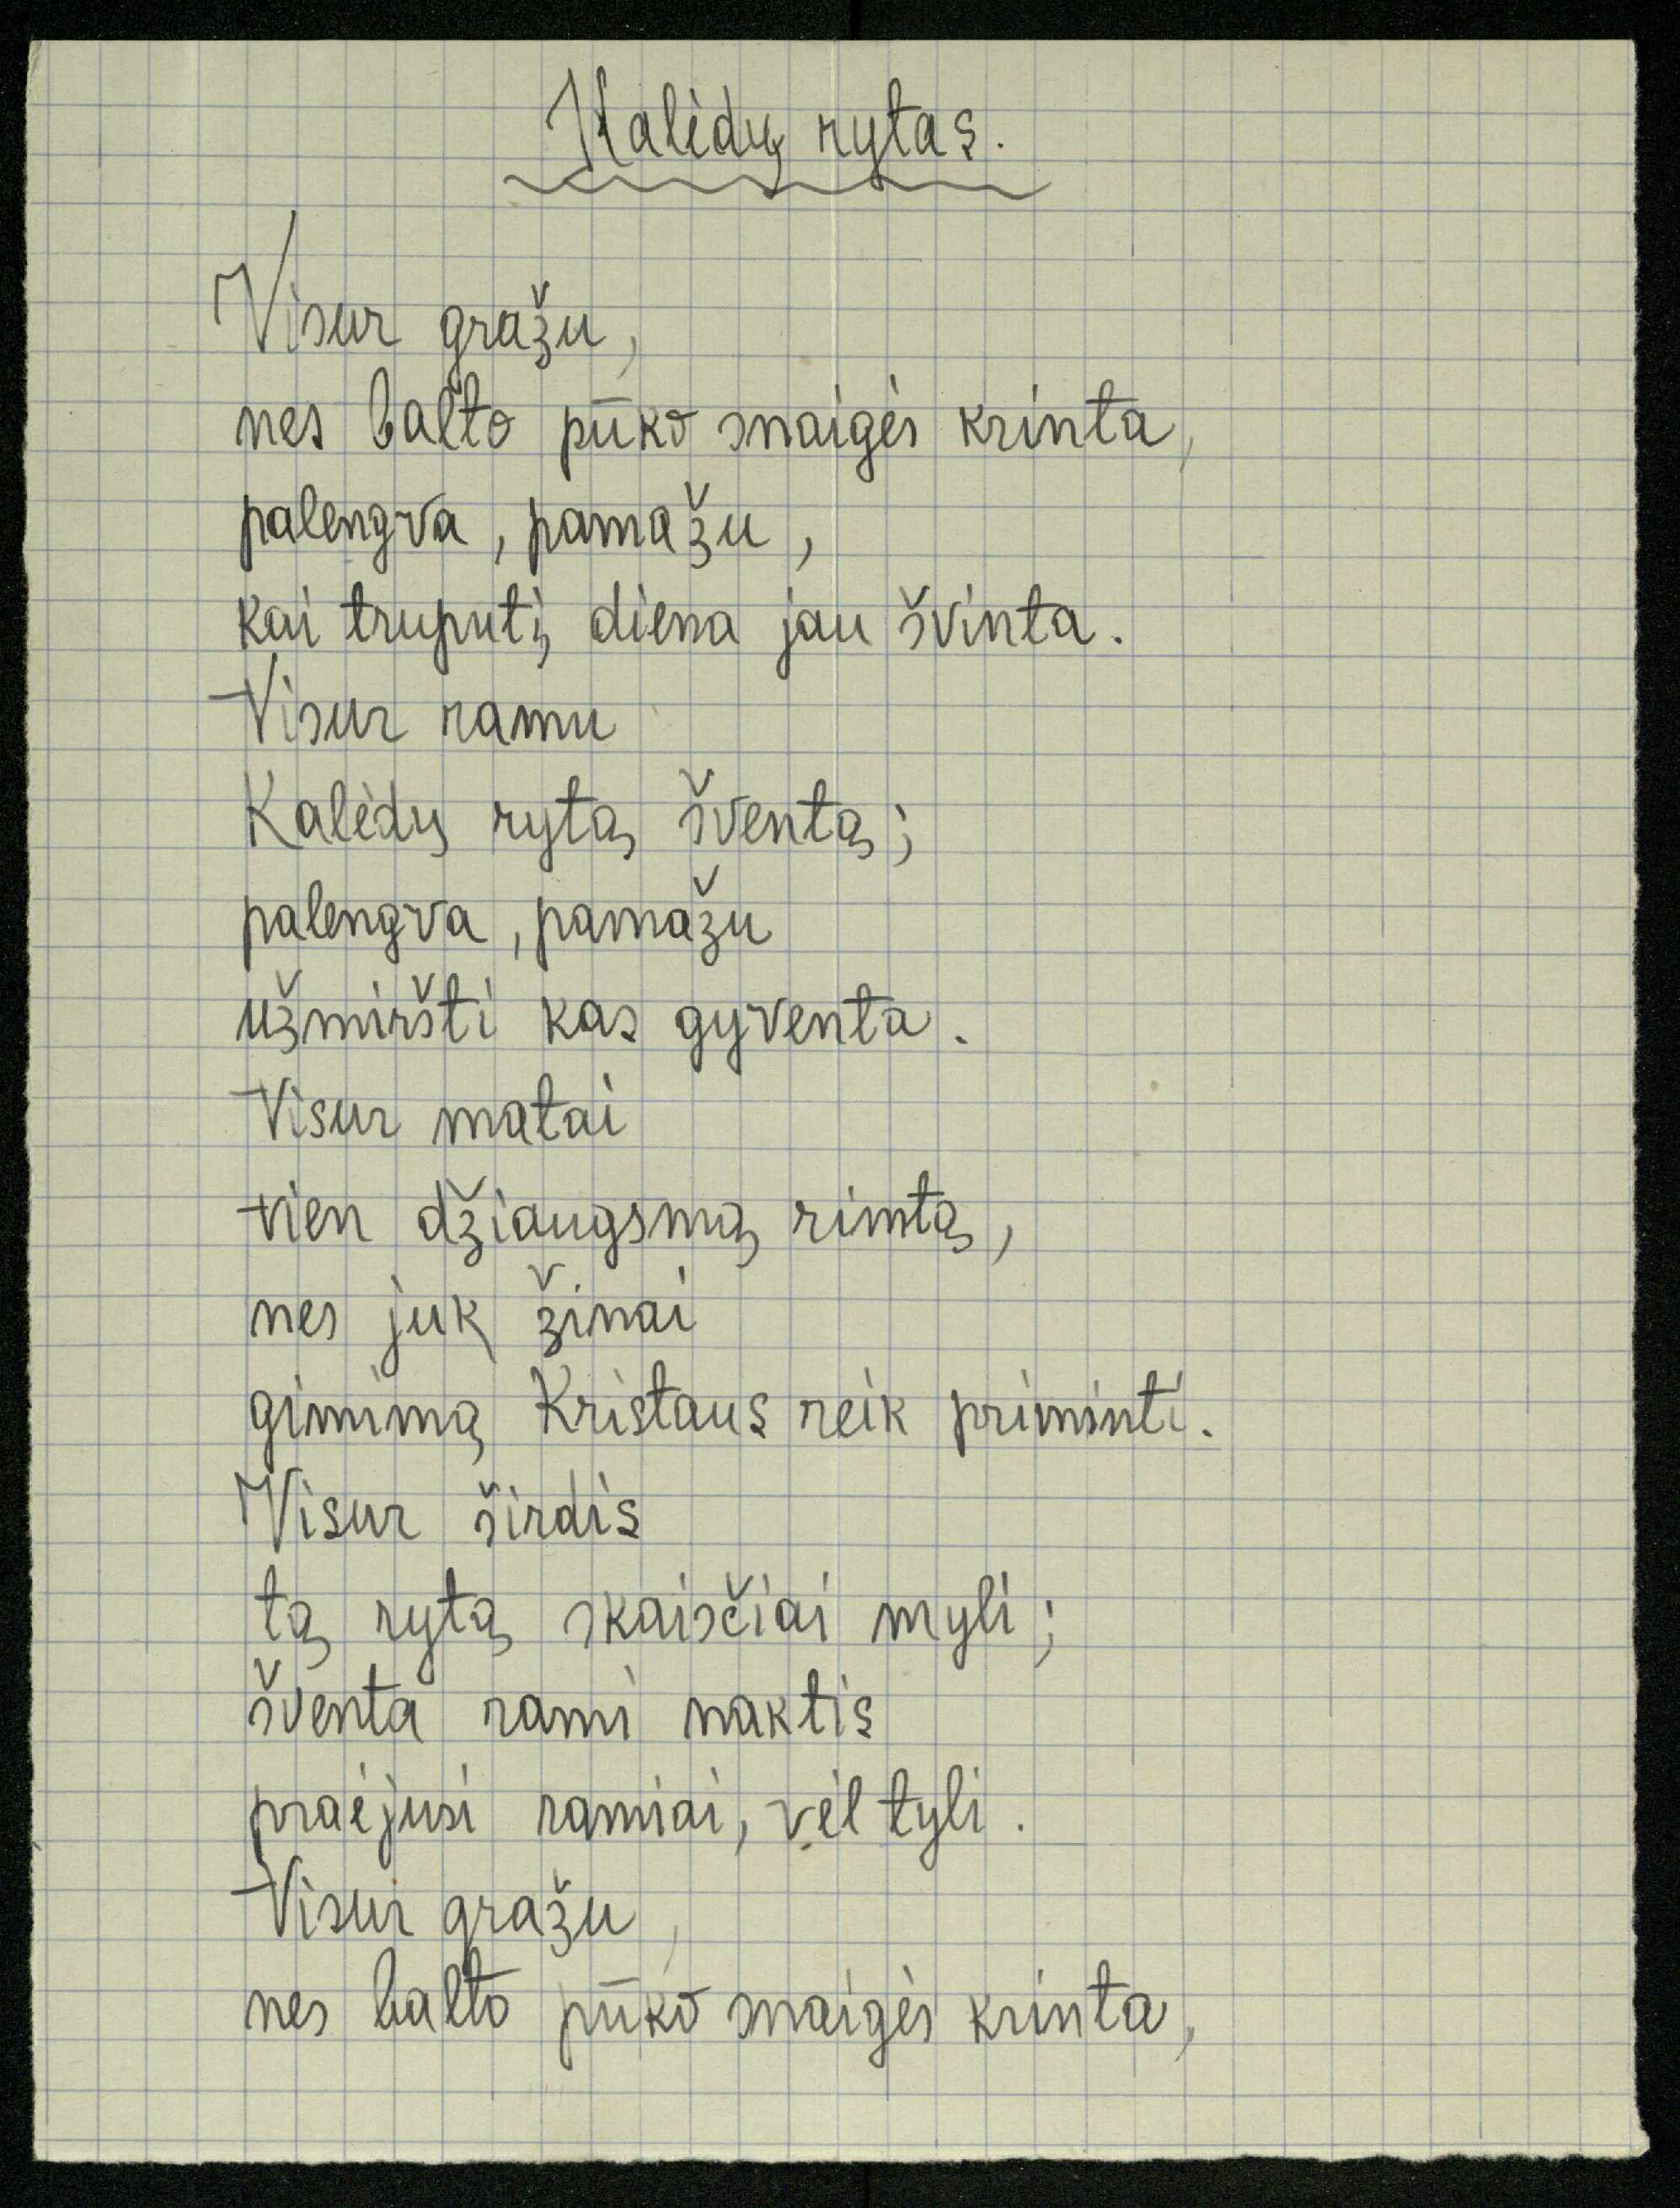 Kalėdų rytas.
Visur gražu,
nes balto pūko snaigės krinta,
palengva, pamažu,
kai truputį diena jau švinta.
Visur ramu
Kalėdų rytą šventą;
palengva, pamažu
užmiršti kas gyventa.
Visur matai
vien džiaugsmą rimtą,
nes juk žinai
gimimą Kristaus reik priminti.
Visur širdis
tą rytą skaisčiai myli;
šventa rami naktis
praėjusi ramiai, vėl tyli.
Visur gražu,
nes balto pūko snaigės krinta,